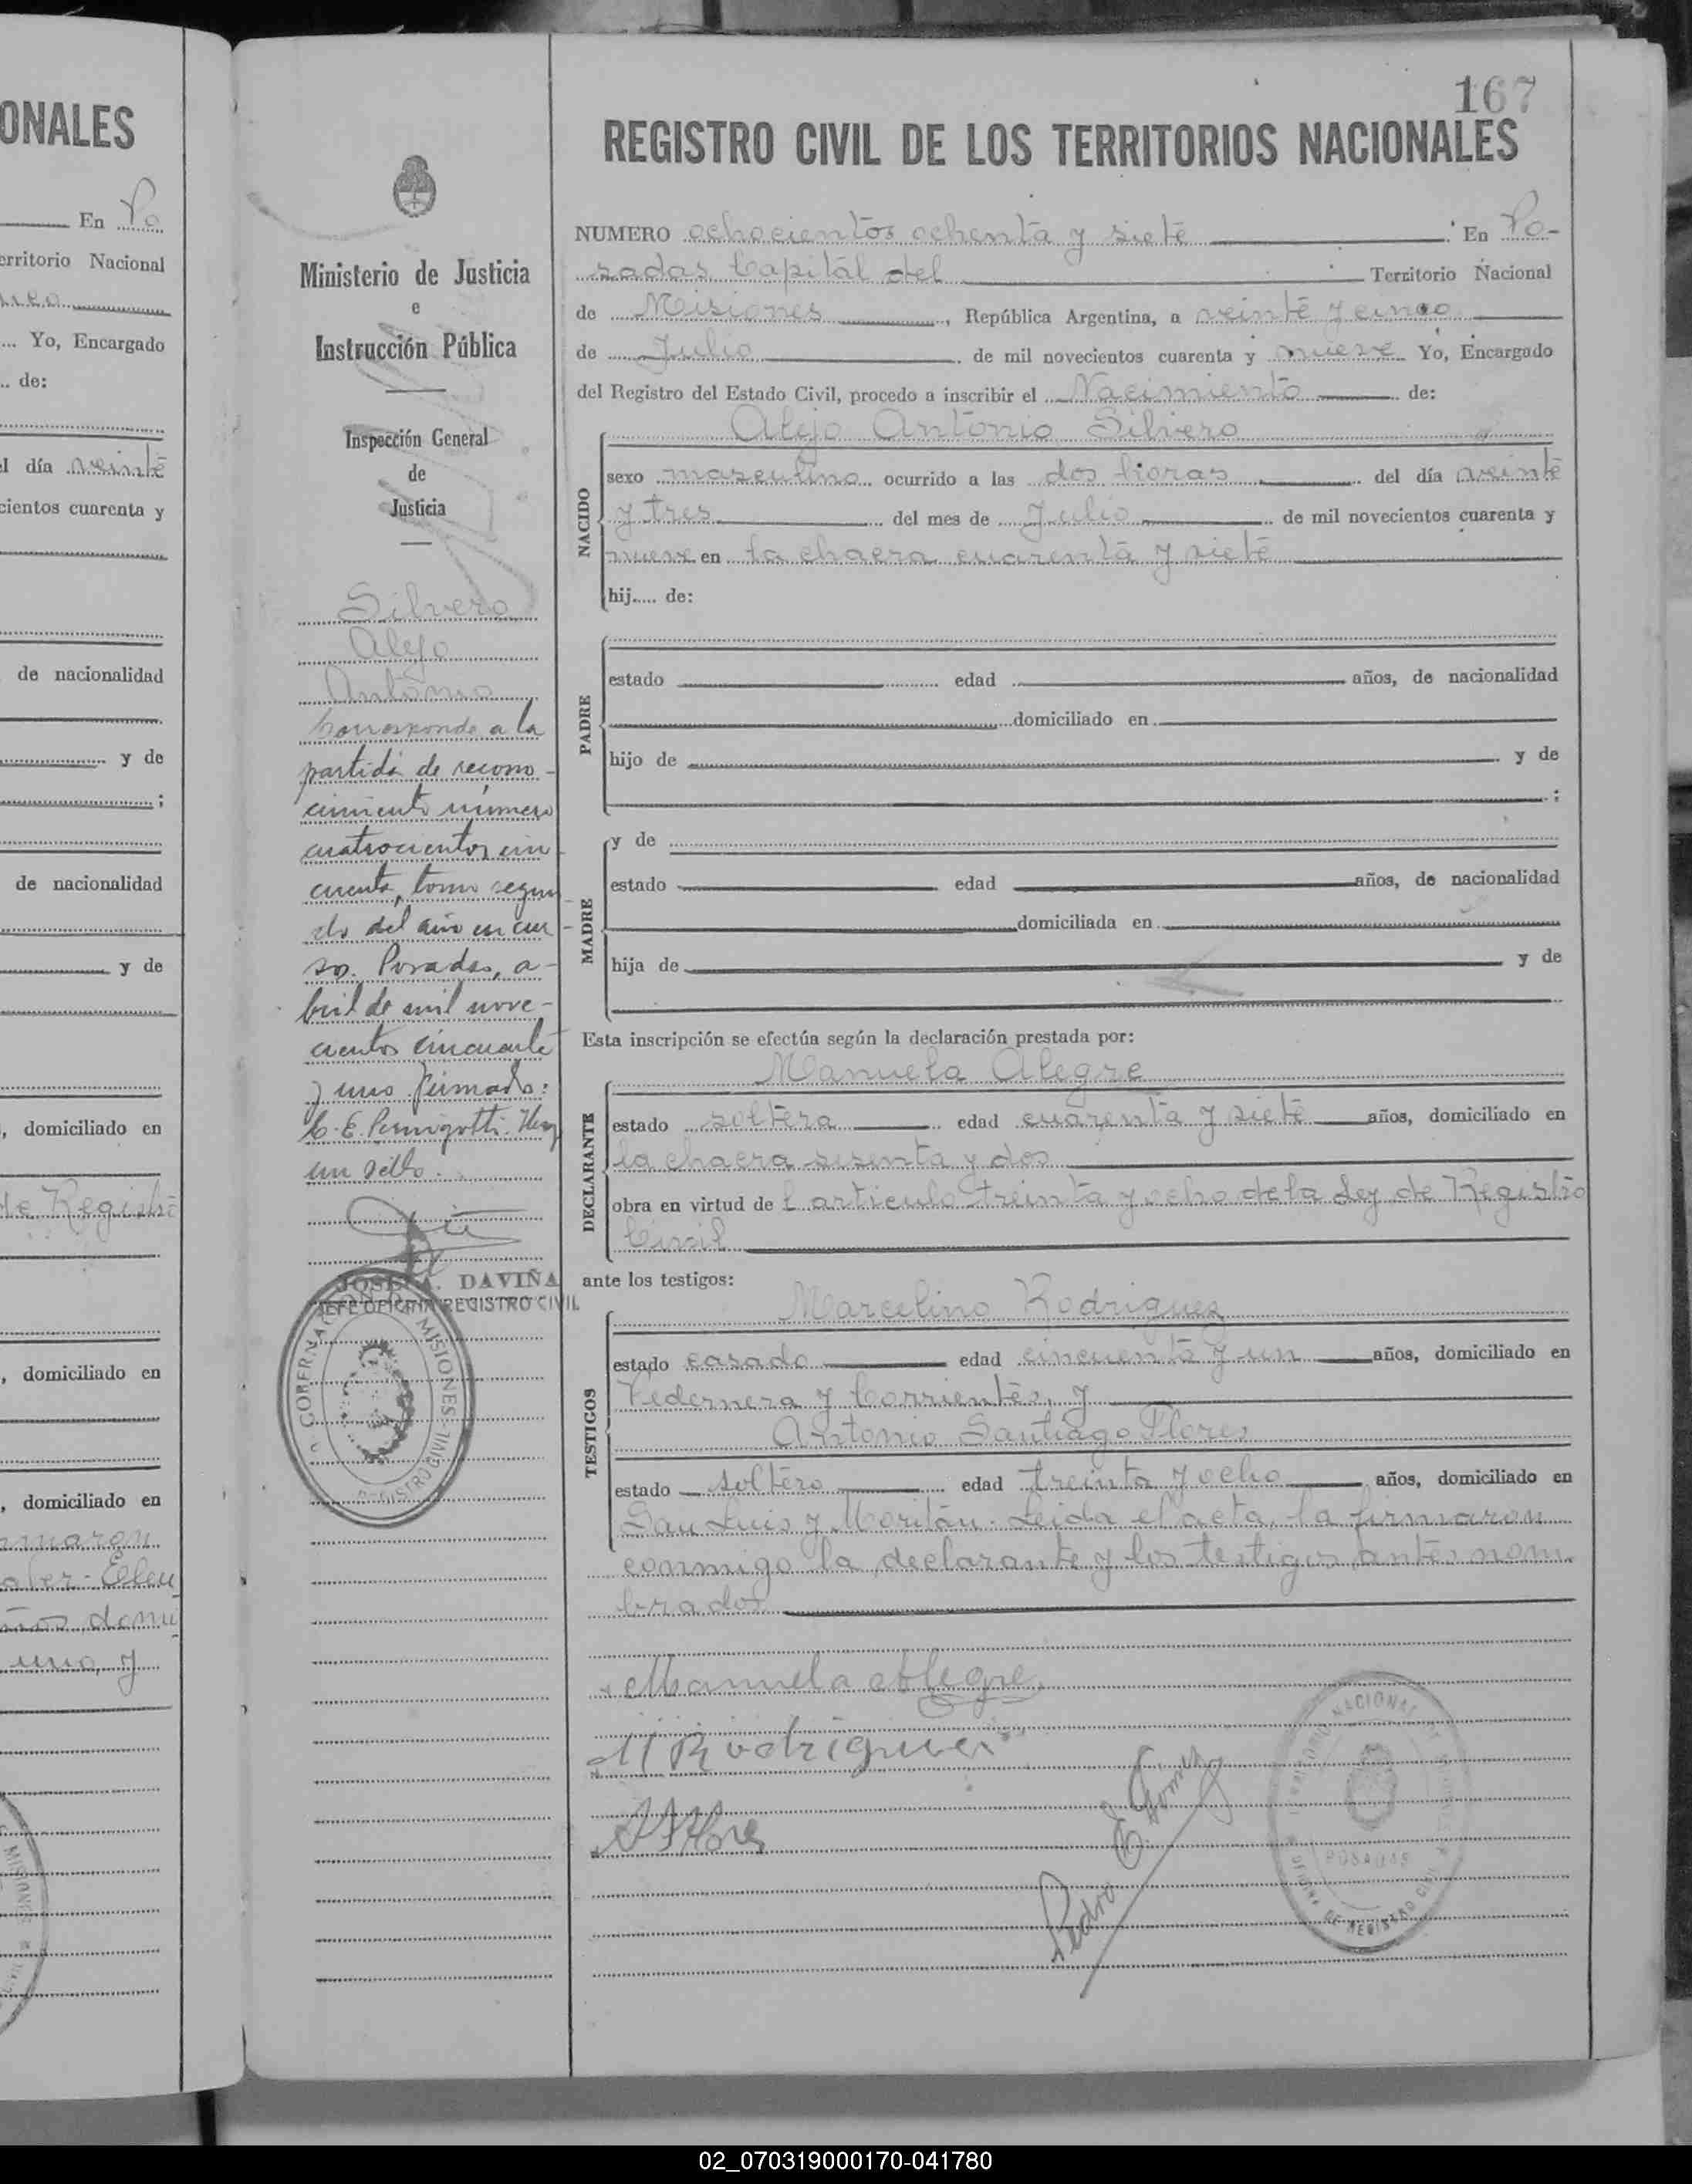 ONALES
En Po
erritorio Nacional
Yo, Encargado
de:
l día veinte
cientos cuarenta y
de nacionalidad
y de
;
de nacionalidad
y de
, domiciliado en
de Registro
, domiciliado en
, domiciliado en
maron
Eleu
años domi
uno, y
MISIONES
Ministerio de Justicia
e
Instrucción Pública
Inspección General
de
Justicia
Silvero
Alejo
Antonio
Corresponde a la
partida de recono-
cimiento número
cuatrocientos cin
cuenta, tomo segun
do del año en cur-
so. Posadas, a-
bril de mil nove-
cientos cincuenta
y uno firmado:
C. E. Hay
un sello.
JOSE A. DAVIÑA
JEFE OFICINA REGISTRO CIVIL
GOBERNACION DE MISIONES
REGISTRO CIVIL
167
REGISTRO CIVIL DE LOS TERRITORIOS NACIONALES
NUMERO ochocientos ochenta y siete En Po-
sadas Capital del Territorio Nacional
de Misiones, República Argentina, a veinte y cinco
de Julio de mil novecientos cuarenta y nueve Yo, Encargado
del Registro del Estado Civil, procedo a inscribir el Nacimiento de:
Alejo Antonio Silvero
NACIDO
sexo masculino ocurrido a las dos horas del día veinte
y tres del mes de Julio de mil novecientos cuarenta y
nueve en la chacra cuarenta y siete
hij..... de:
PADRE
estado edad años, de nacionalidad
domiciliado en
hijo de y de
;
MADRE
y de
estado edad años, de nacionalidad
domiciliada en
hija de y de
Esta inscripción se efectúa según la declaración prestada por:
Manuela Alegre
DECLARANTE
estado soltera edad cuarenta y siete años, domiciliado en
la chacra sesenta y dos
obra en virtud de l articulo treinta y ocho de la Ley de Registro
Civil
ante los testigos:
Marcelino Rodriguez
TESTIGOS
estado casado edad cincuenta y un años, domiciliado en
Pedernera y Corrientes, y
Antonio Santiago Flores
estado soltero edad treinta y ocho años, domiciliado en
San Luis y Moritán. Leida el acta, la firmaron
conmigo la declarante y los testigos antes nom-
brados
Manuela Alegre
M Rodriguez
A S Flores
Pedro E. Gómez
POSADAS
OFICINA DE REGISTRO CIVIL
02_070319000170-041780